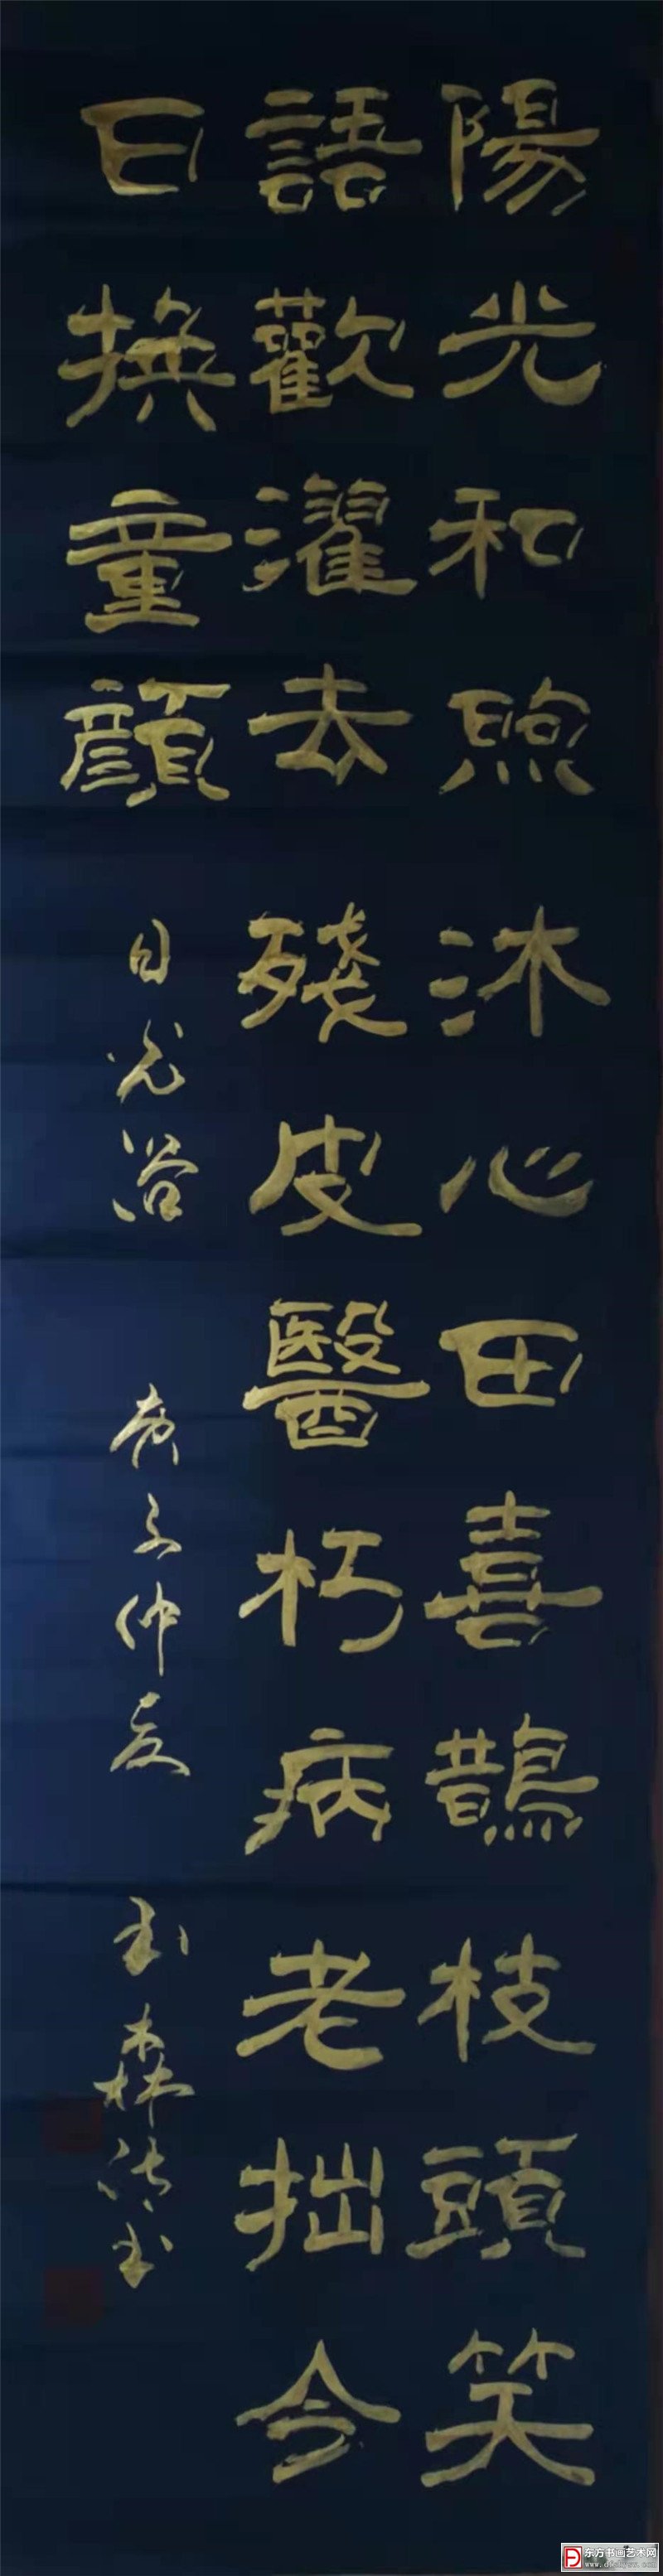 陽光和煦沐心田喜鵲枝頭笑
語歡濯去殘皮醫朽病老拙今
日換童顏
日光浴 庚子仲夏
东方书画艺术网